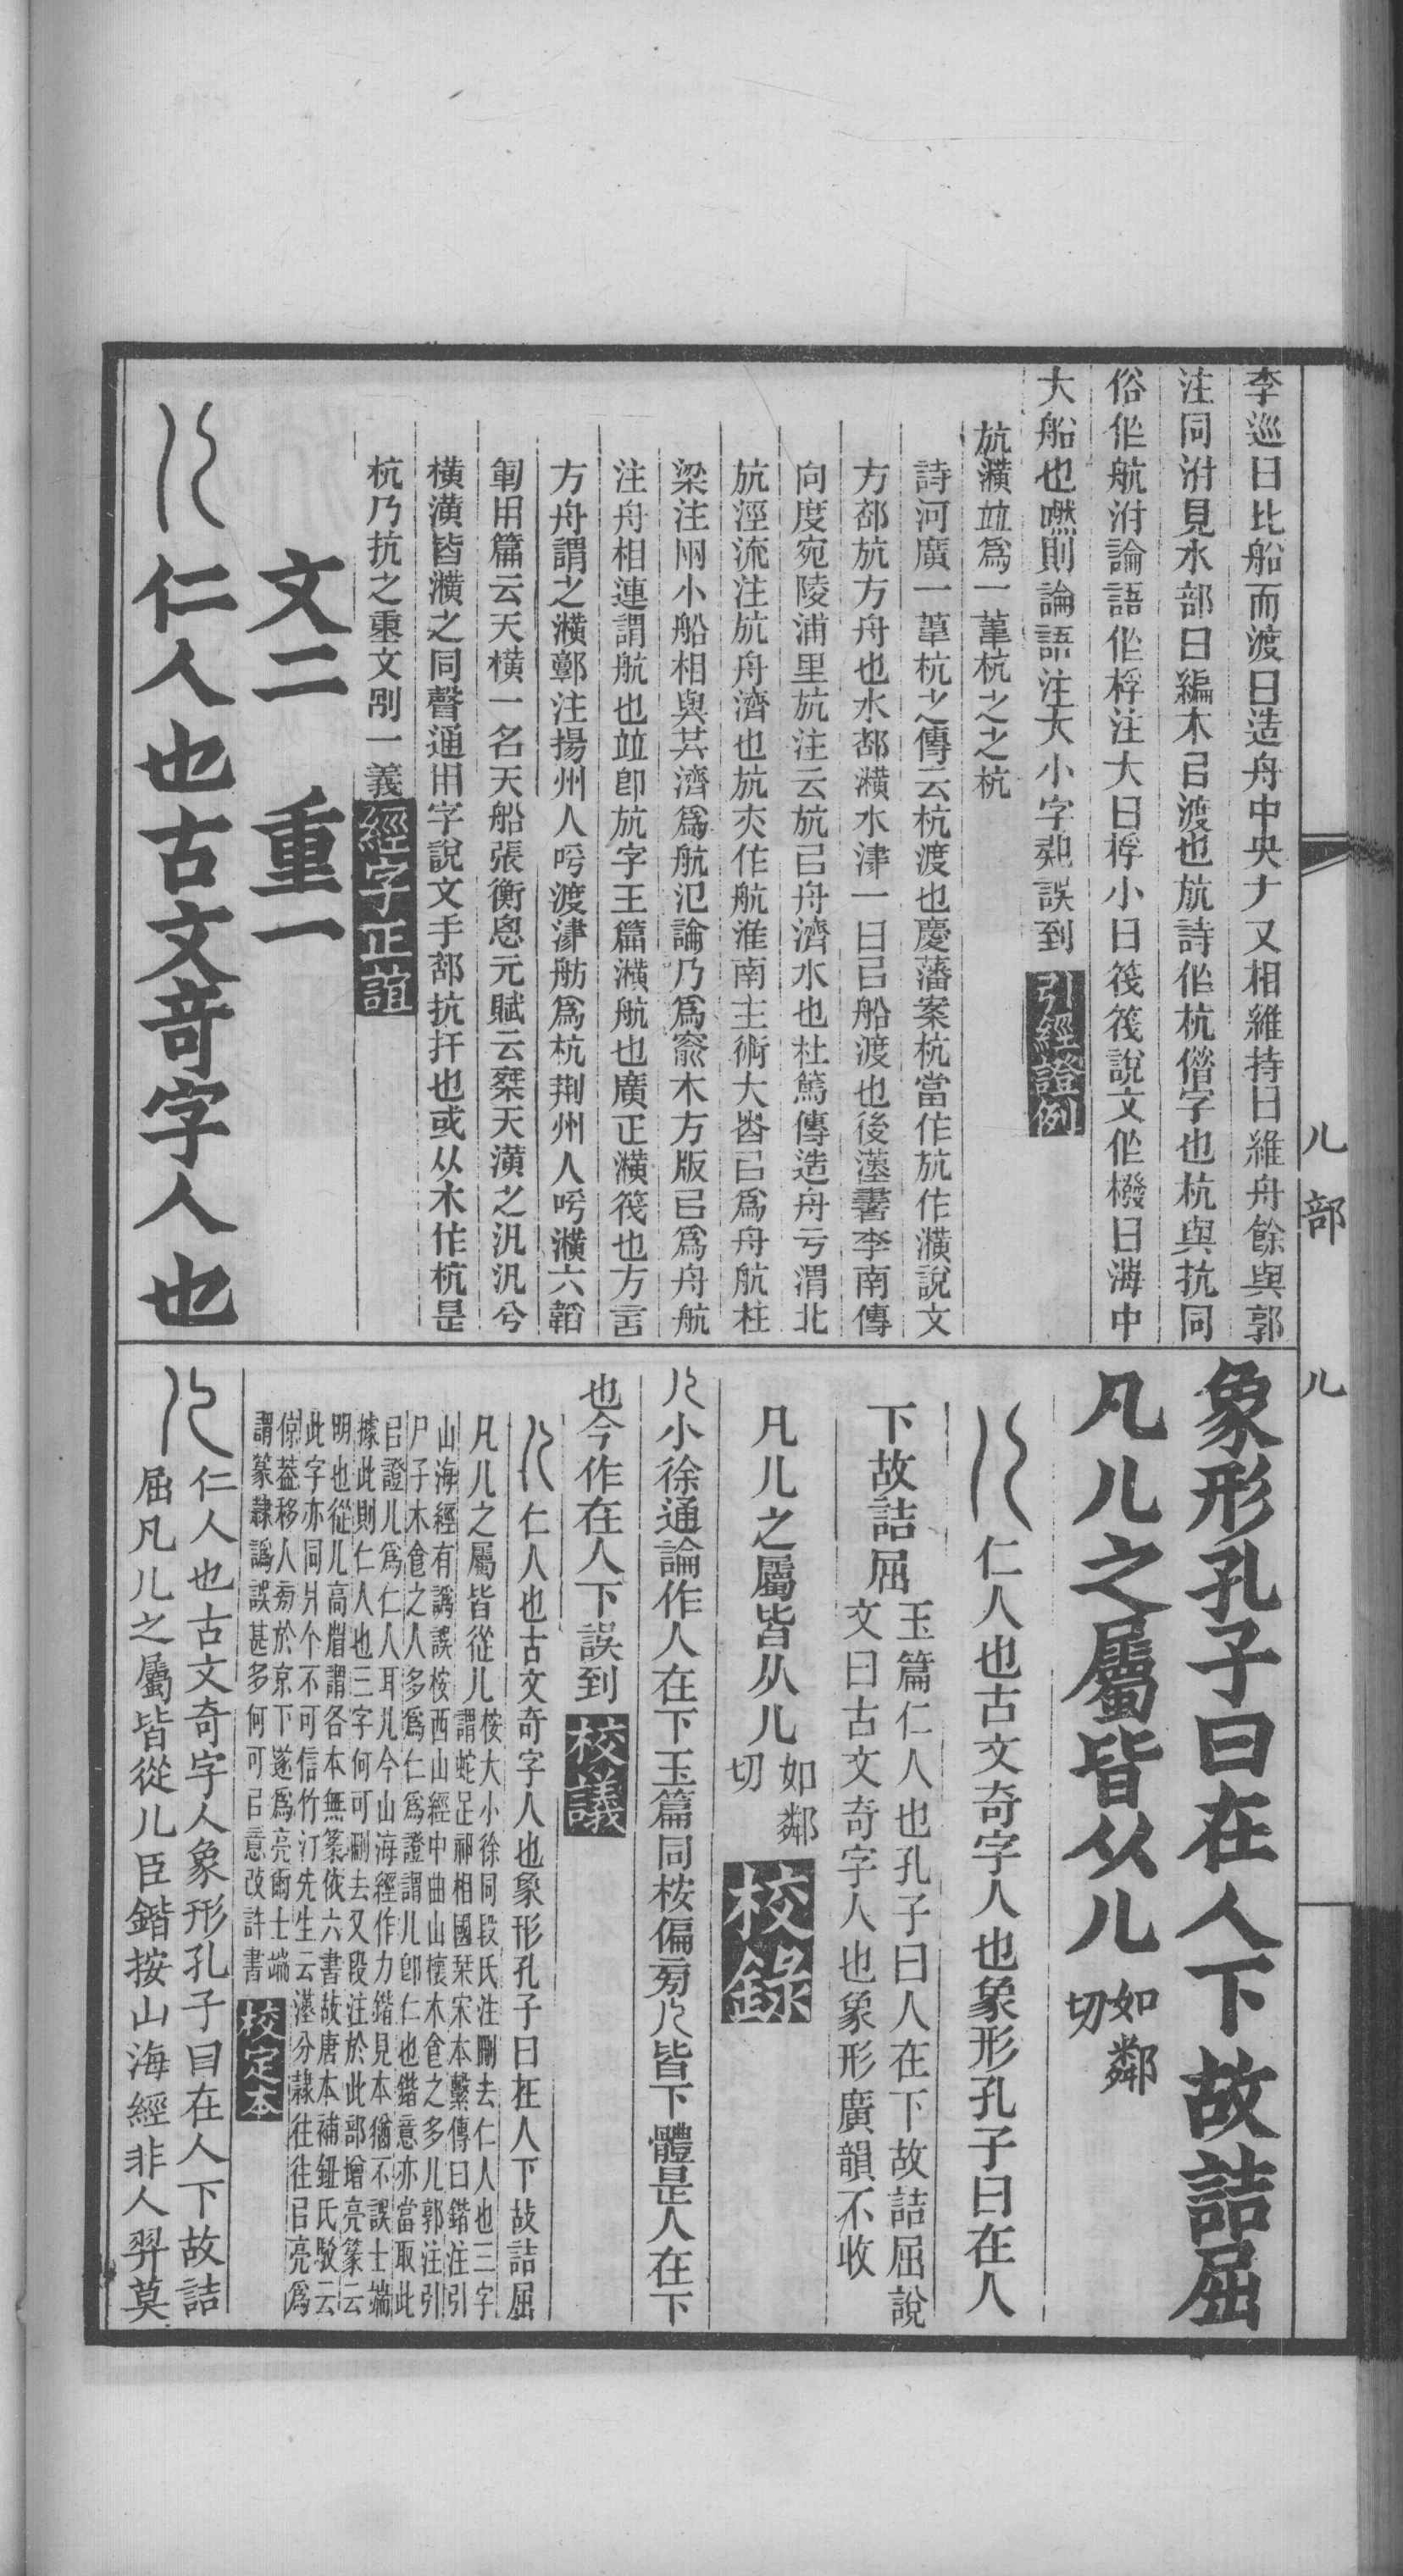 李巡曰比船而渡曰造舟中央ナ又相維持曰維舟餘與郭
注同泭見水部曰編木㠯渡也斻詩作杭借字也杭與抗同
俗作航泭論語作桴注大曰桴小曰筏筏說文作橃曰海中
大船也嘫則論語注大小字㷼誤到 引經證例
斻潢竝爲一葦杭之之杭
詩河廣一葦杭之傳云杭渡也慶藩案杭當作斻作潢說文
方部斻方舟也水部潢水津一曰㠯船渡也後漢書李南傳
向度宛陵浦里斻注云斻㠯舟濟水也杜篤傳造舟亏渭北
斻涇流注斻舟濟也斻夾作航淮南主術大者㠯爲舟航柱
梁注网小船相與共濟爲航氾論乃爲窾木方版㠯爲舟航
注舟相連謂航也竝卽斻字玉篇潢航也廣正潢筏也方言
方舟謂之潢郭注揚州人呼渡津舫爲杭荆州人呼潢六韜
軍用篇云天橫一名天船張衡思元賦云桒天潢之汎汎兮
橫潢皆潢之同聲通用字說文手部抗扞也或从木作杭是
杭乃抗之重文別一義 經字正誼
文二 重一
儿 仁人也古文奇字人也
儿部 儿
象形孔子曰在人下故詰屈
凡儿之屬皆从儿 如鄰
切
儿 仁人也古文奇字人也象形孔子曰在人
下故詰屈 玉篇仁人也孔子曰人在下故詰屈說
文曰古文奇字人也象形廣韻不收
凡儿之屬皆从儿 如鄰
切 校錄
儿小徐通論作人在下玉篇同桉偏㫄儿皆下體是人在下
也今作在人下誤到 校議
儿 仁人也古文奇字人也象形孔子曰在人下故詰屈
凡儿之屬皆從儿 桉大小徐同段氏注刪去仁人也三字
謂蛇足祁相國栞宋本繫傳曰鍇注引
山海經有譌誤桉西山經中曲山櫰木食之多儿郭注引
尸子木食之人多爲仁爲證謂儿卽仁也鍇意亦當取此
㠯證儿爲仁人耳儿今山海經作力鍇見本猶不誤士端
據此則仁人也三字何可刪去又段注於此部增亮篆云
明也從儿高㴋謂各本無篆依六書故唐本補鈕氏駁云
此字亦同爿个不可信竹汀先生云漢分隸往往㠯亮爲
倞葢移人㫄於京下遂爲亮爾士端
謂篆隸譌誤甚多何可㠯意改許書 校定本
儿 仁人也古文奇字人象形孔子曰在人下故詰
屈凡儿之屬皆從儿臣鍇按山海經非人羿莫